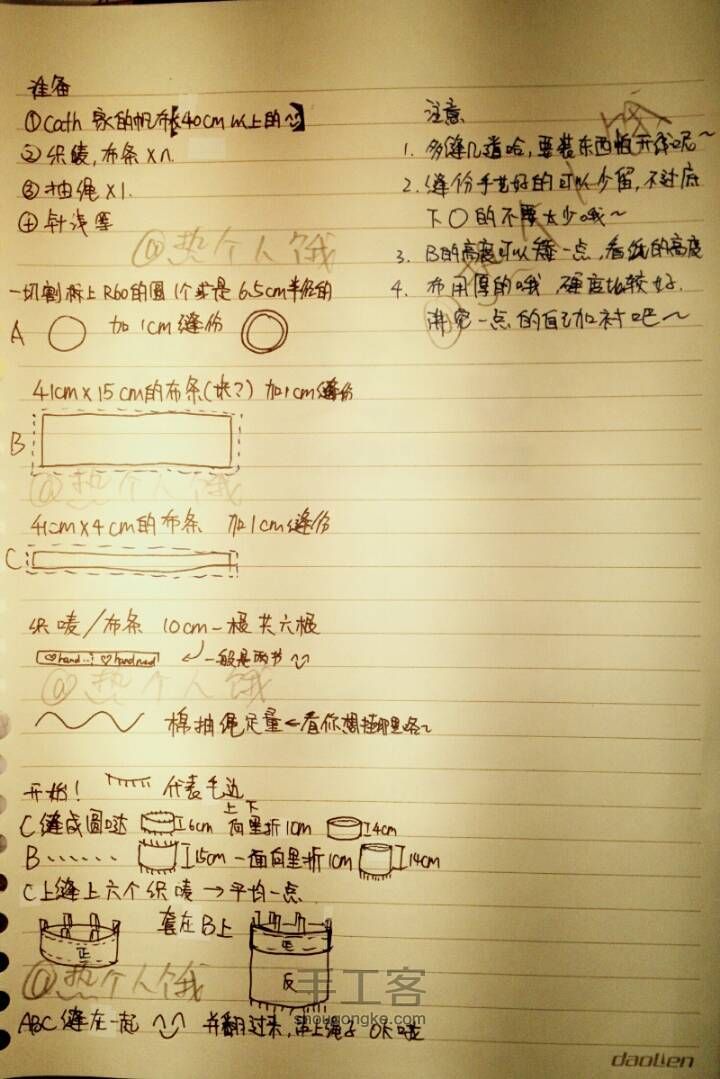 准备
①Cath家的帆布【40cm以上的】
②织唛,布条×n
③抽绳×1.
④针线等
@热个人饿
一切割标上R60的圆1个或是6.5cm半径的
A 加1cm缝份
41cm×15cm的布条(块?)加1cm缝份
B
@热个人饿
41cm×4cm的布条 加1cm缝份
C
织唛/布条 10cm一根共六根
♡hand ♡handmad 一般是两节
@热个人饿
棉抽绳足量←看你想挂哪里咯~
开始! 代表毛边
C缝成圆哒 6cm 上下向里折1cm 4cm
B…… 15cm 一面向里折1cm 14cm
C上缝上六个织唛→平均一点
正 套在B上 正
反
@热个人饿
ABC缝在一起 并翻过来,串上绳子OK哦
注意
1. 多缝几道哈,要装东西怕开线呢~
2. 缝份手艺好的可以少留,不过底
下〇的不要太少哦~
3. B的高度可以矮一点,看纸的高度
4. 布用厚的哦 硬度比较好.
讲究一点的自己加衬吧~
手工客
shougongke.com
daolien